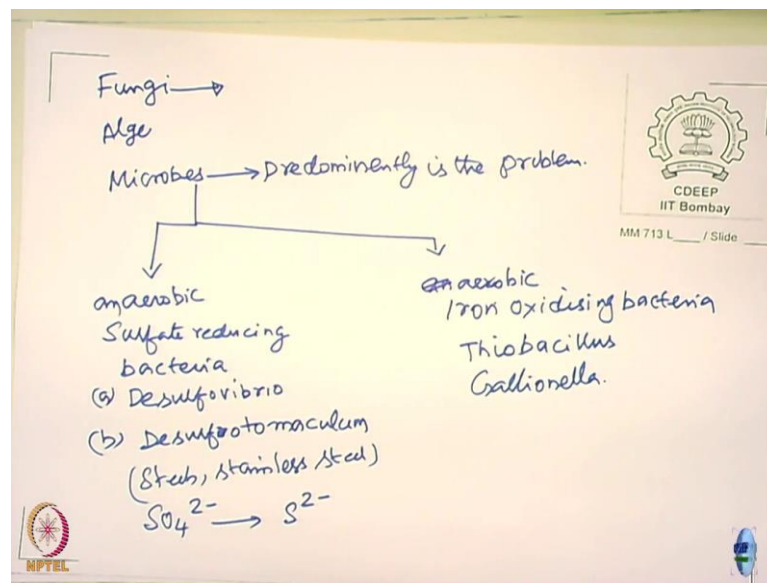 Fungi →
Alge
Microbes → Predominently is the problem.
anaerobic
Sulfate reducing
bacteria
(a) Desulfovibrio
(b) Desulfotomaculum
(Steels, stainless steel)
SO₄²⁻ → S²⁻
aerobic
Iron oxidising bacteria
Thiobacillus
Gallionella.
CDEEP
IIT Bombay
MM 713 L____ / Slide ____
NPTEL